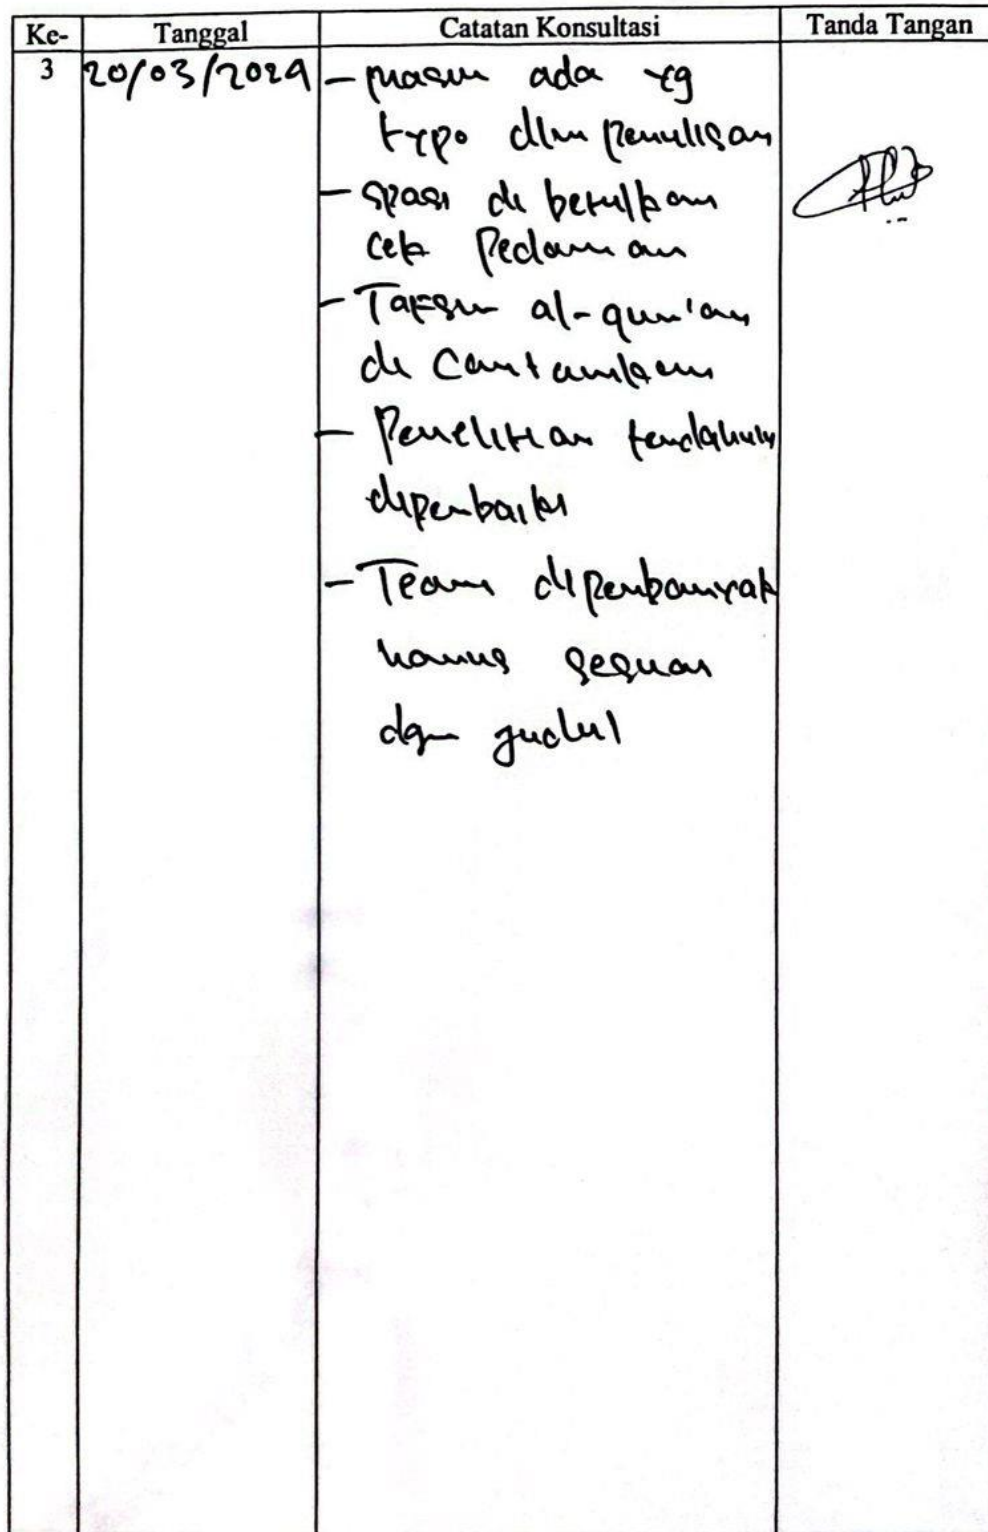 Ke- Tanggal Catatan Konsultasi Tanda Tangan
3 20/03/2024 - masih ada yg
typo dlm penulisan
- spasi di betulkan
cek Pedoman
- Tafsir al-qur'an
di Cantumkan
- Penelitian terdahulu
diperbaiki
- Teori diperbanyak
harus sesuai
dgn judul